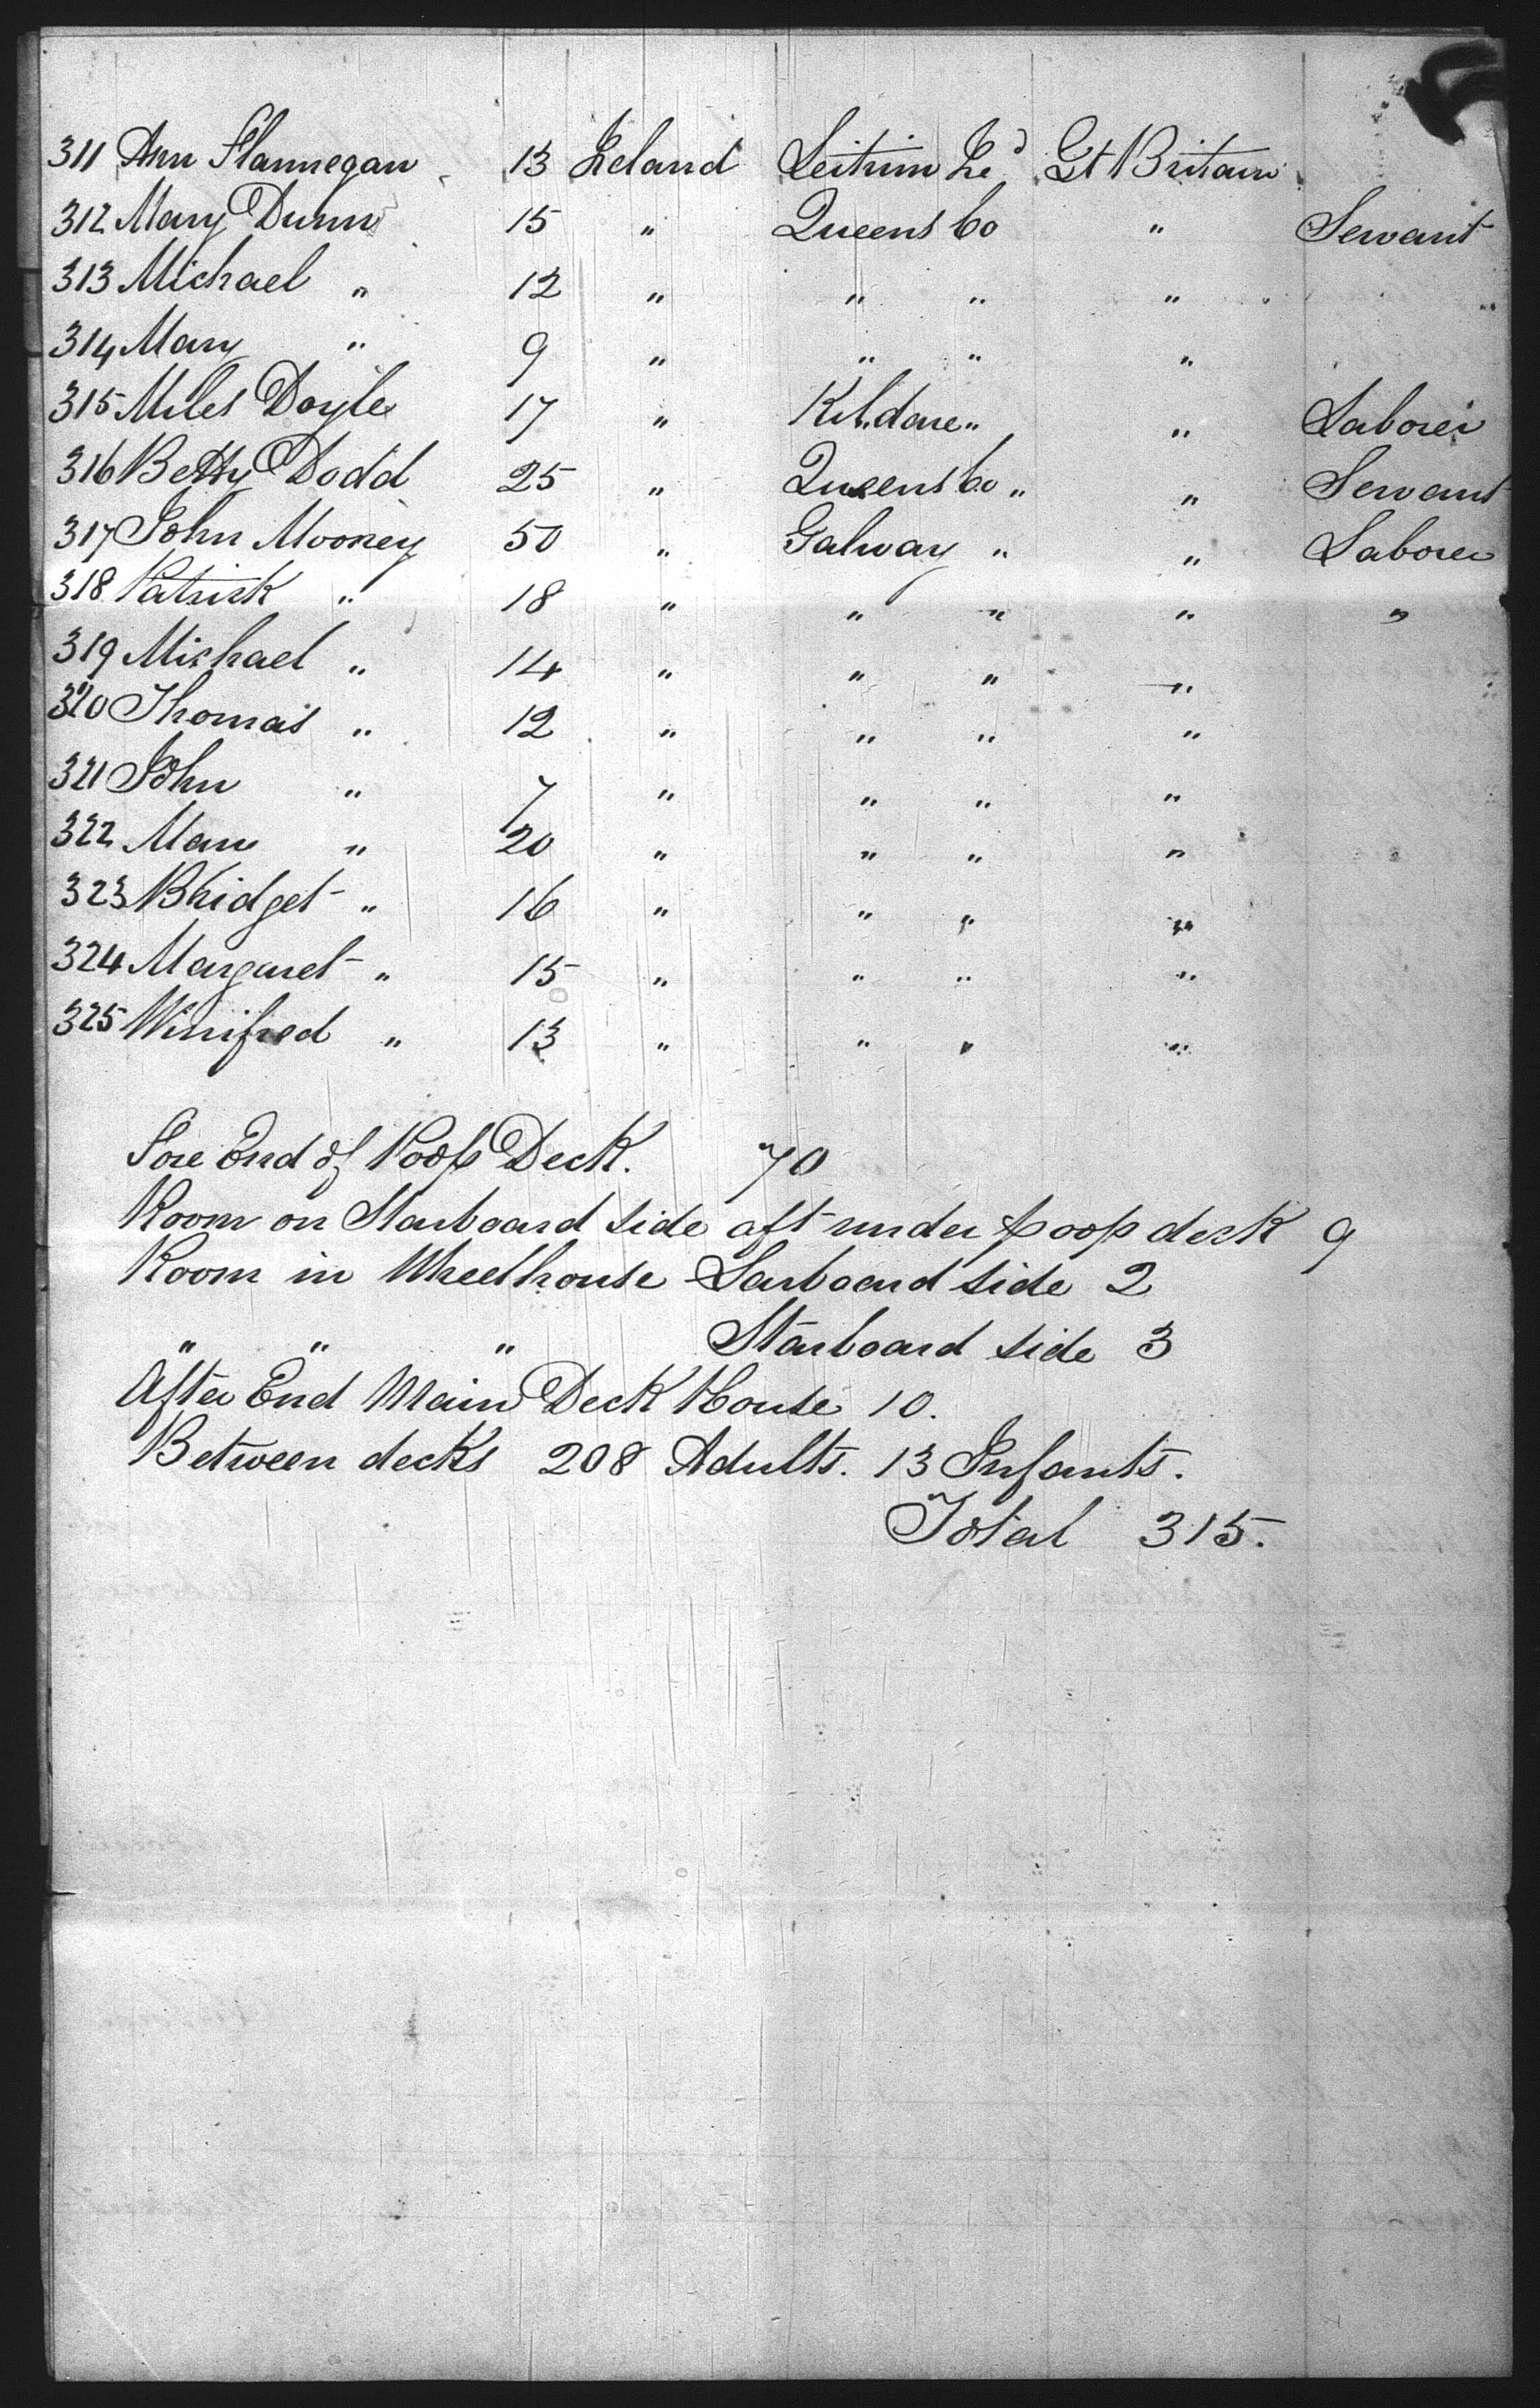 311 Ann Flannegan 13 Ireland Leitrim Ird Gt Britain
312 Mary Dunn 15 " Queens Co " Servant
313 Michael " 12 " " " "
314 Mary " 9 " " " "
315 Miles Doyle 17 " Kildare " " Laborer
316 Betty Dodd 25 " Queens Co " " Servant
317 John Mooney 50 " Galway " " Laborer
318 Patrick " 18 " " " " "
319 Michael " 14 " " " "
320 Thomas " 12 " " " "
321 John " 7 " " " "
322 Mary " 20 " " " "
323 Bridget " 16 " " " "
324 Margaret " 15 " " " "
325 Winifred " 13 " " " "
Fore End of Poop Deck. 70
Room on Starboard side aft under poop deck 9
Room in Wheelhouse Larboard side 2
" " " Starboard side 3
After End Main Deck House 10.
Between decks 208 Adults. 13 Infants.
Total 315.